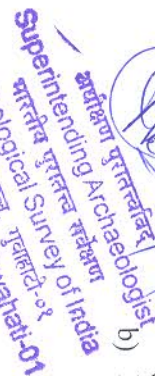 अधीक्षण पुरातत्वविद
Superintending Archaeologist
भारतीय पुरातत्व सर्वेक्षण
ological Survey of India
गुवाहाटी-०१
wahati-01
b)